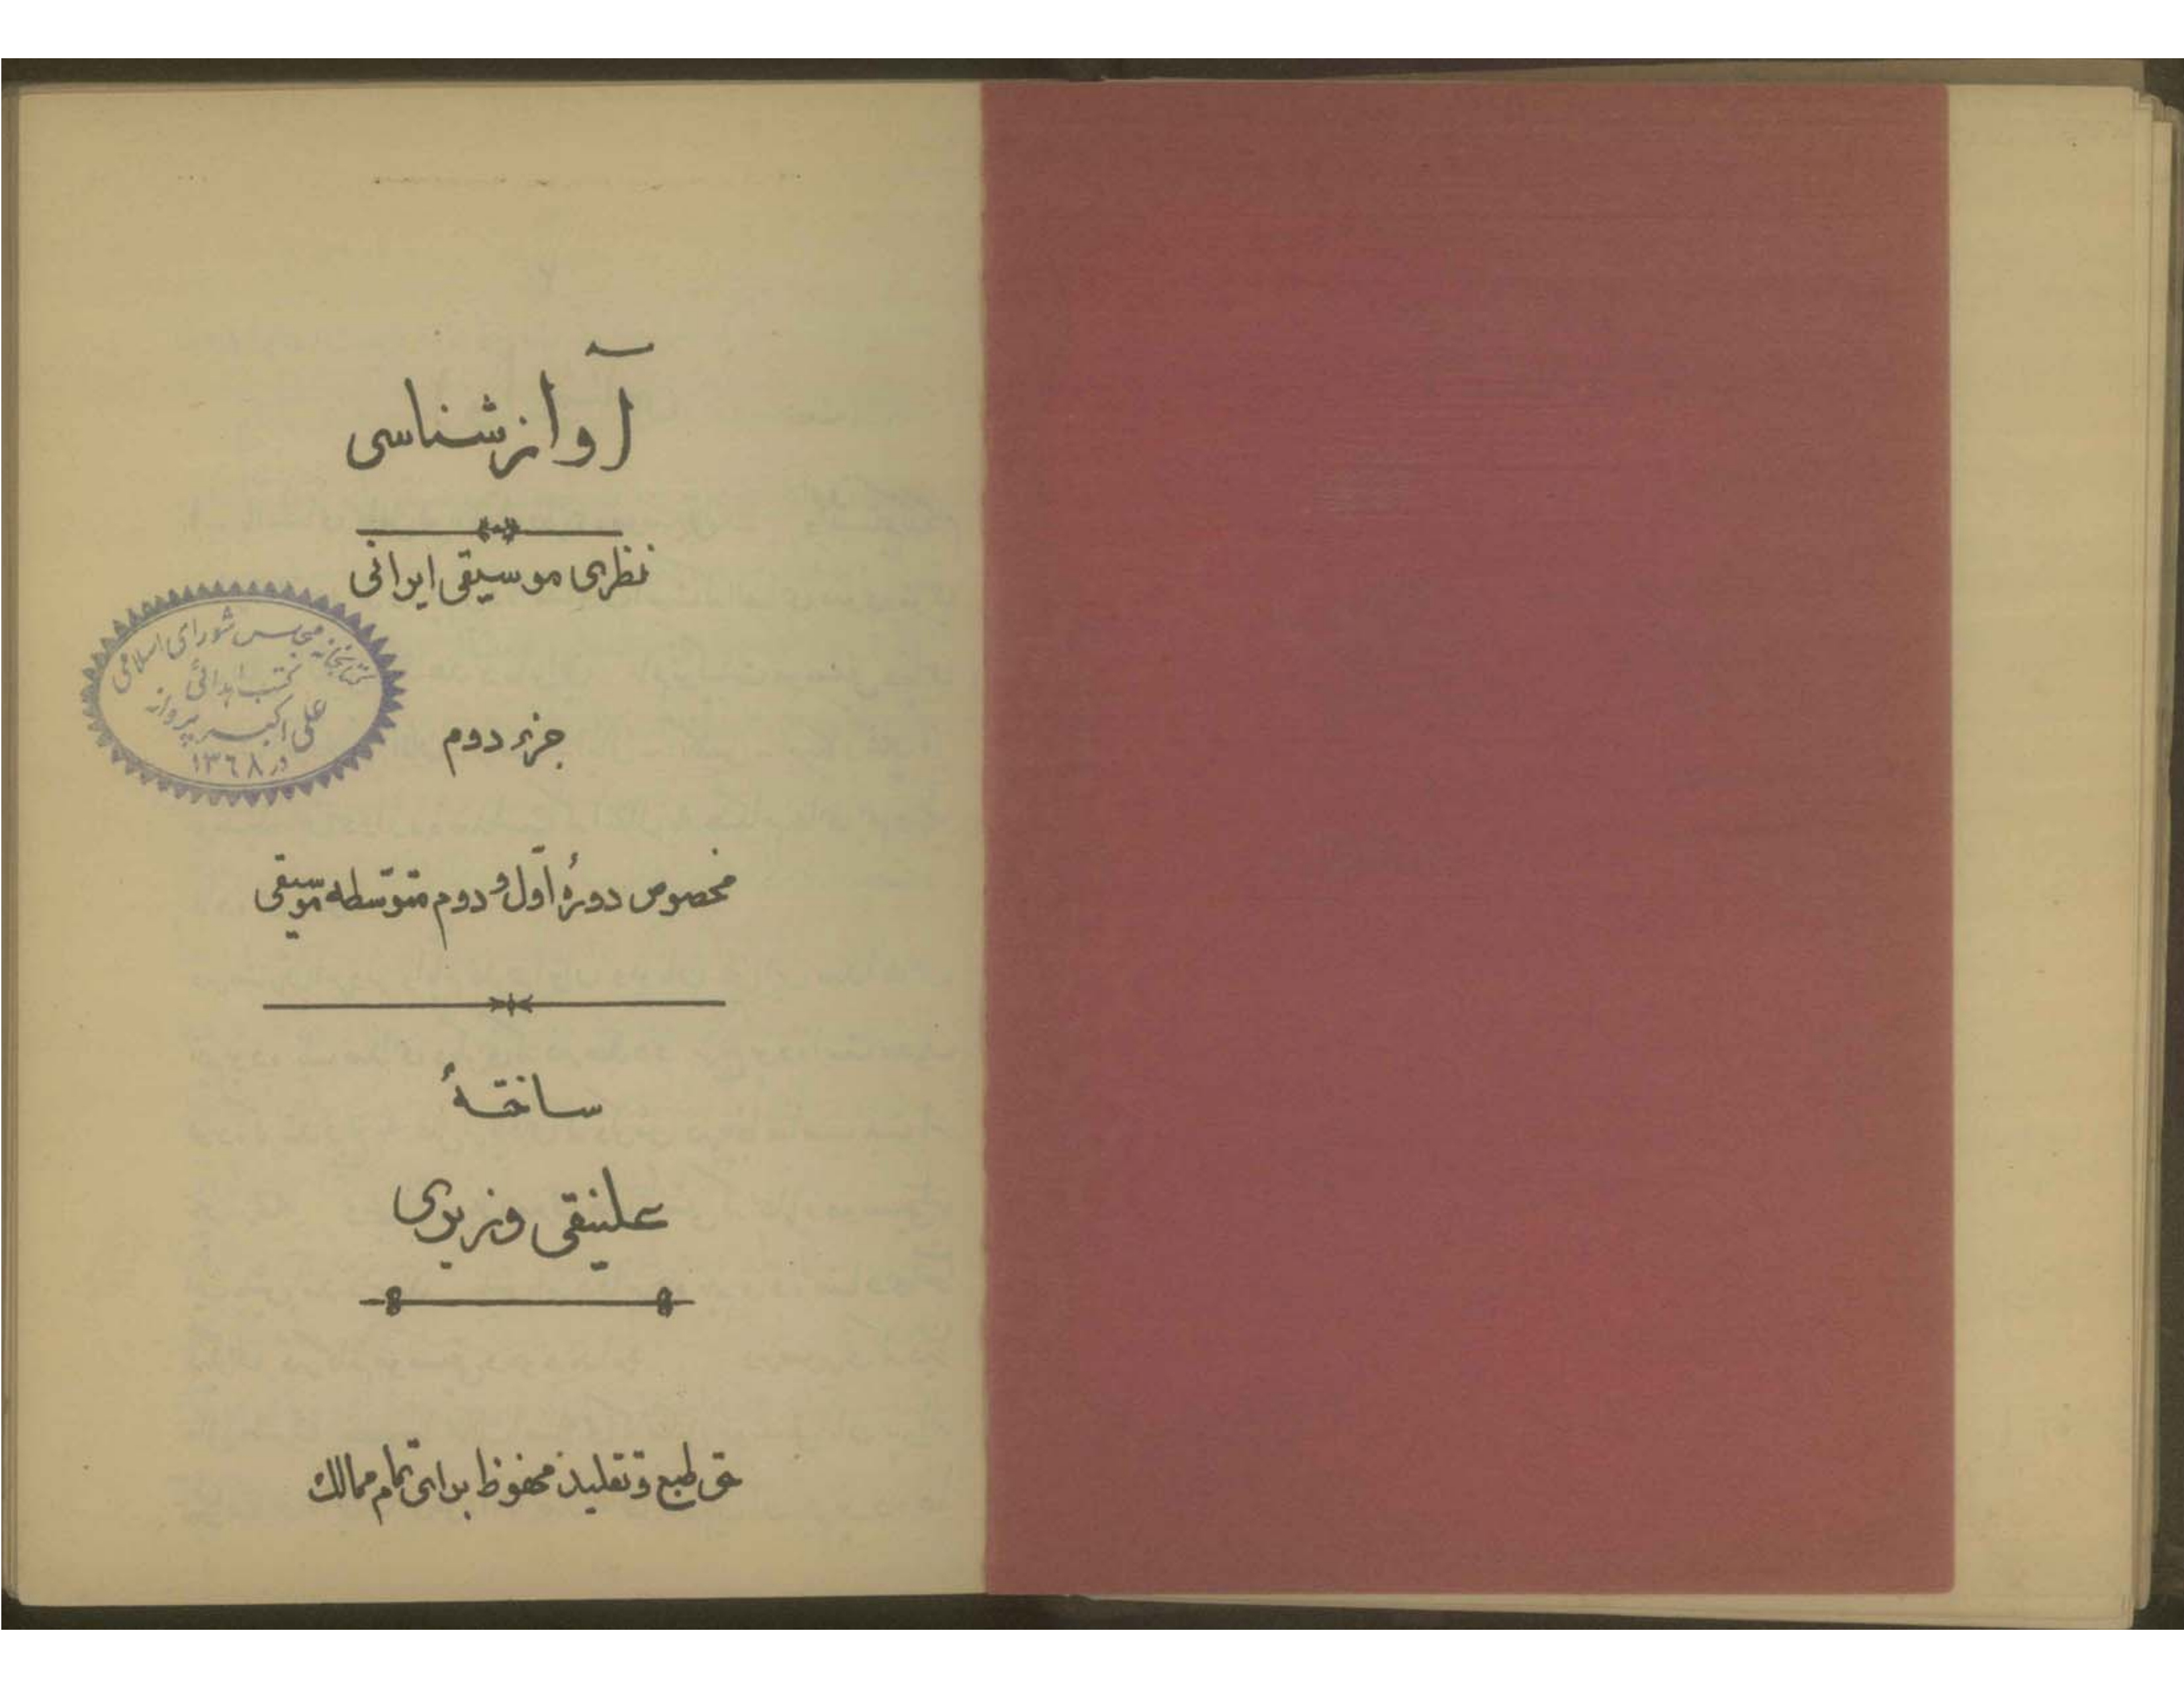 آوازشناسی
نظری موسیقی ایرانی
کتابخانه مجلس شورای اسلامی
کتب اهدائی
علی اکبر پروانه
در ۱۳۶۸
جزء دوم
مخصوص دورهٔ اوّل و دوم متوّسطه موسیقی
ساختهٔ
علینقی وزیری
حق طبع و تقلید محفوظ برای تمام ممالک